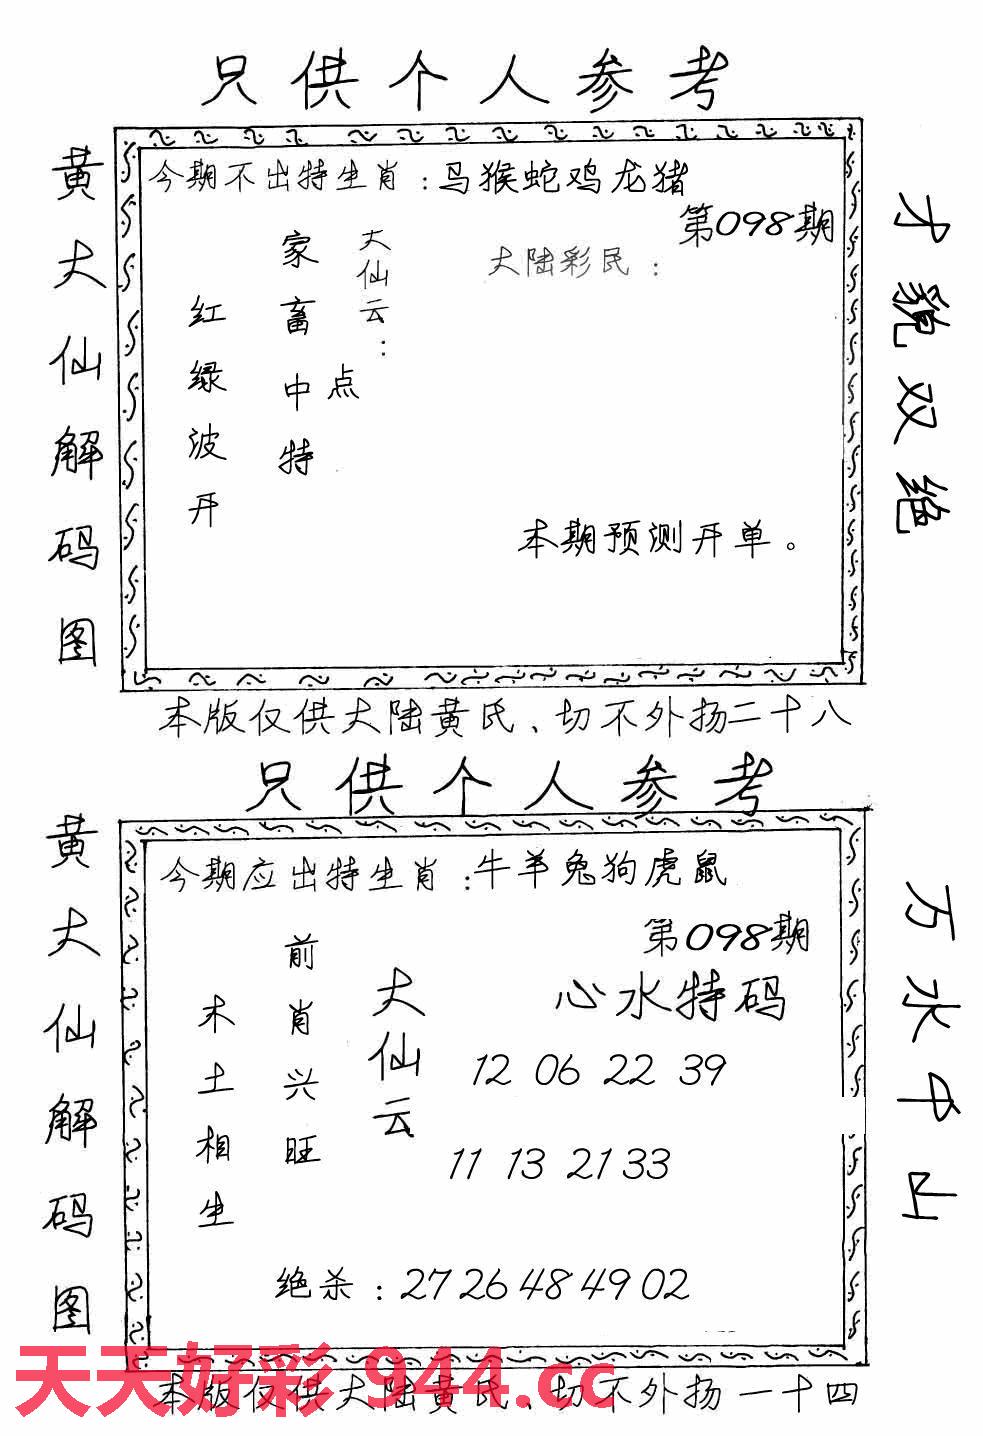 只供个人参考
黄大仙解码图
今期不出特生肖：马猴蛇鸡龙猪
第098期
大陆彩民：
大仙云：
家畜中特
点
红绿波开
本期预测开单。
才貌双绝
本版仅供大陆黄氏、切不外扬二十八
只供个人参考
黄大仙解码图
今期应出特生肖：牛羊兔狗虎鼠
第098期
心水特码
大仙云
前肖兴旺
木土相生
12 06 22 39
11 13 21 33
绝杀：27 26 48 49 02
万水中山
天天好彩 944.cc
本版仅供大陆黄氏、切不外扬一十四